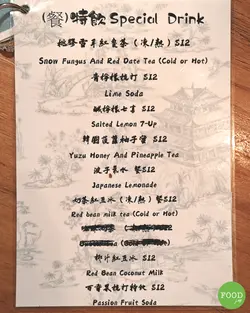 (餐)特飲 Special Drink
桃膠雪耳紅棗茶（凍/熱）$12
Snow Fungus And Red Date Tea (Cold or Hot)
青檸檬梳打 $12
Lime Soda
鹹檸檬七喜 $12
Salted Lemon 7-Up
韓國菠蘿柚子蜜 $12
Yuzu Honey And Pineapple Tea
波子氣水 餐$12
Japanese Lemonade
奶茶紅豆冰（凍/熱）餐$12
Red bean milk tea (Cold or Hot)
椰汁紅豆冰 $12
Red Bean Coconut Milk
百香果梳打特飲 $12
Passion Fruit Soda
FOOD